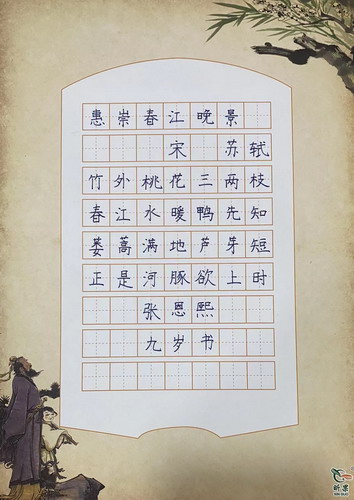 惠崇春江晚景
宋 苏轼
竹外桃花三两枝
春江水暖鸭先知
蒌蒿满地芦芽短
正是河豚欲上时
张恩熙
九岁书
昕果
XIN GUO